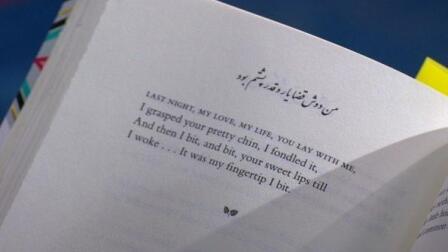 من دوش قضا یار و قدر پشتم بود
LAST NIGHT, MY LOVE, MY LIFE, YOU LAY WITH ME,
I grasped your pretty chin, I fondled it,
And then I bit, and bit, your sweet lips till
I woke . . . It was my fingertip I bit.
common